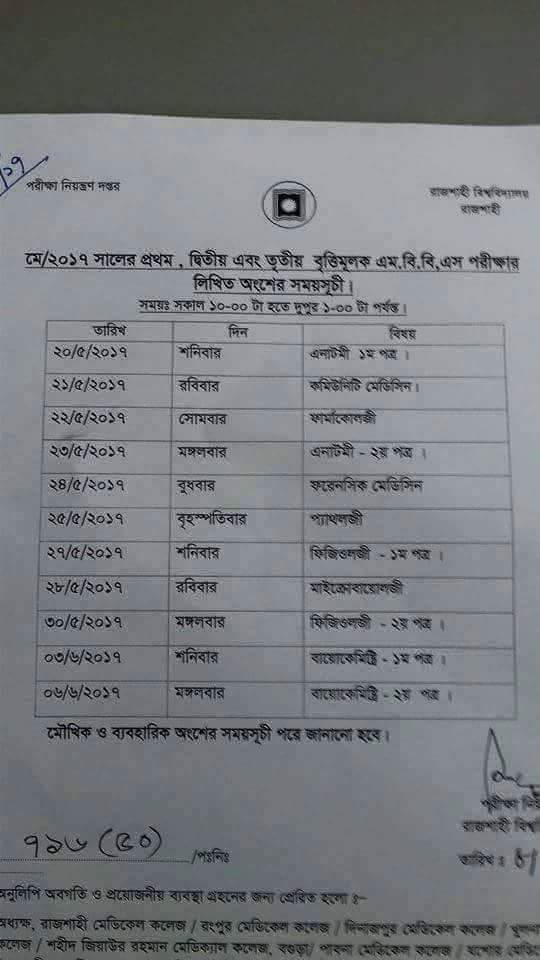 পরীক্ষা নিয়ন্ত্রণ দপ্তর
রাজশাহী বিশ্ববিদ্যালয়
রাজশাহী
মে/২০১৭ সালের প্রথম , দ্বিতীয় এবং তৃতীয় বৃত্তিমূলক এম.বি.বি,এস পরীক্ষার
লিখিত অংশের সময়সূচী।
সময়ঃ সকাল ১০-০০ টা হতে দুপুর ১-০০ টা পর্যন্ত।
তারিখ দিন বিষয়
২০/৫/২০১৭ শনিবার এনাটমী ১ম পত্র ।
২১/৫/২০১৭ রবিবার কমিউনিটি মেডিসিন।
২২/৫/২০১৭ সোমবার ফার্মাকোলজী
২৩/৫/২০১৭ মঙ্গলবার এনাটমী - ২য় পত্র ।
২৪/৫/২০১৭ বুধবার ফরেনসিক মেডিসিন
২৫/৫/২০১৭ বৃহস্পতিবার প্যাথলজী
২৭/৫/২০১৭ শনিবার ফিজিওলজী - ১ম পত্র ।
২৮/৫/২০১৭ রবিবার মাইক্রোবায়োলজী
৩০/৫/২০১৭ মঙ্গলবার ফিজিওলজী - ২য় পত্র ।
০৩/৬/২০১৭ শনিবার বায়োকেমিষ্ট্রি - ১ম পত্র ।
০৬/৬/২০১৭ মঙ্গলবার বায়োকেমিষ্ট্রি - ২য় পত্র ।
মৌখিক ও ব্যবহারিক অংশের সময়সূচী পরে জানানো হবে।
পরীক্ষা
রাজশাহী
৭১৬ (৫০) /পঃনিঃ
তারিখ ঃ
অনুলিপি অবগতি ও প্রয়োজনীয় ব্যবস্থা গ্রহনের জন্য প্রেরিত হলো ঃ-
অধ্যক্ষ, রাজশাহী মেডিকেল কলেজ / রংপুর মেডিকেল কলেজ / দিনাজপুর মেডিকেল কলেজ / খুলনা
কলেজ / শহীদ জিয়াউর রহমান মেডিক্যাল কলেজ, বগুড়া/ পাবনা মেডিকেল কলেজ / যশোর